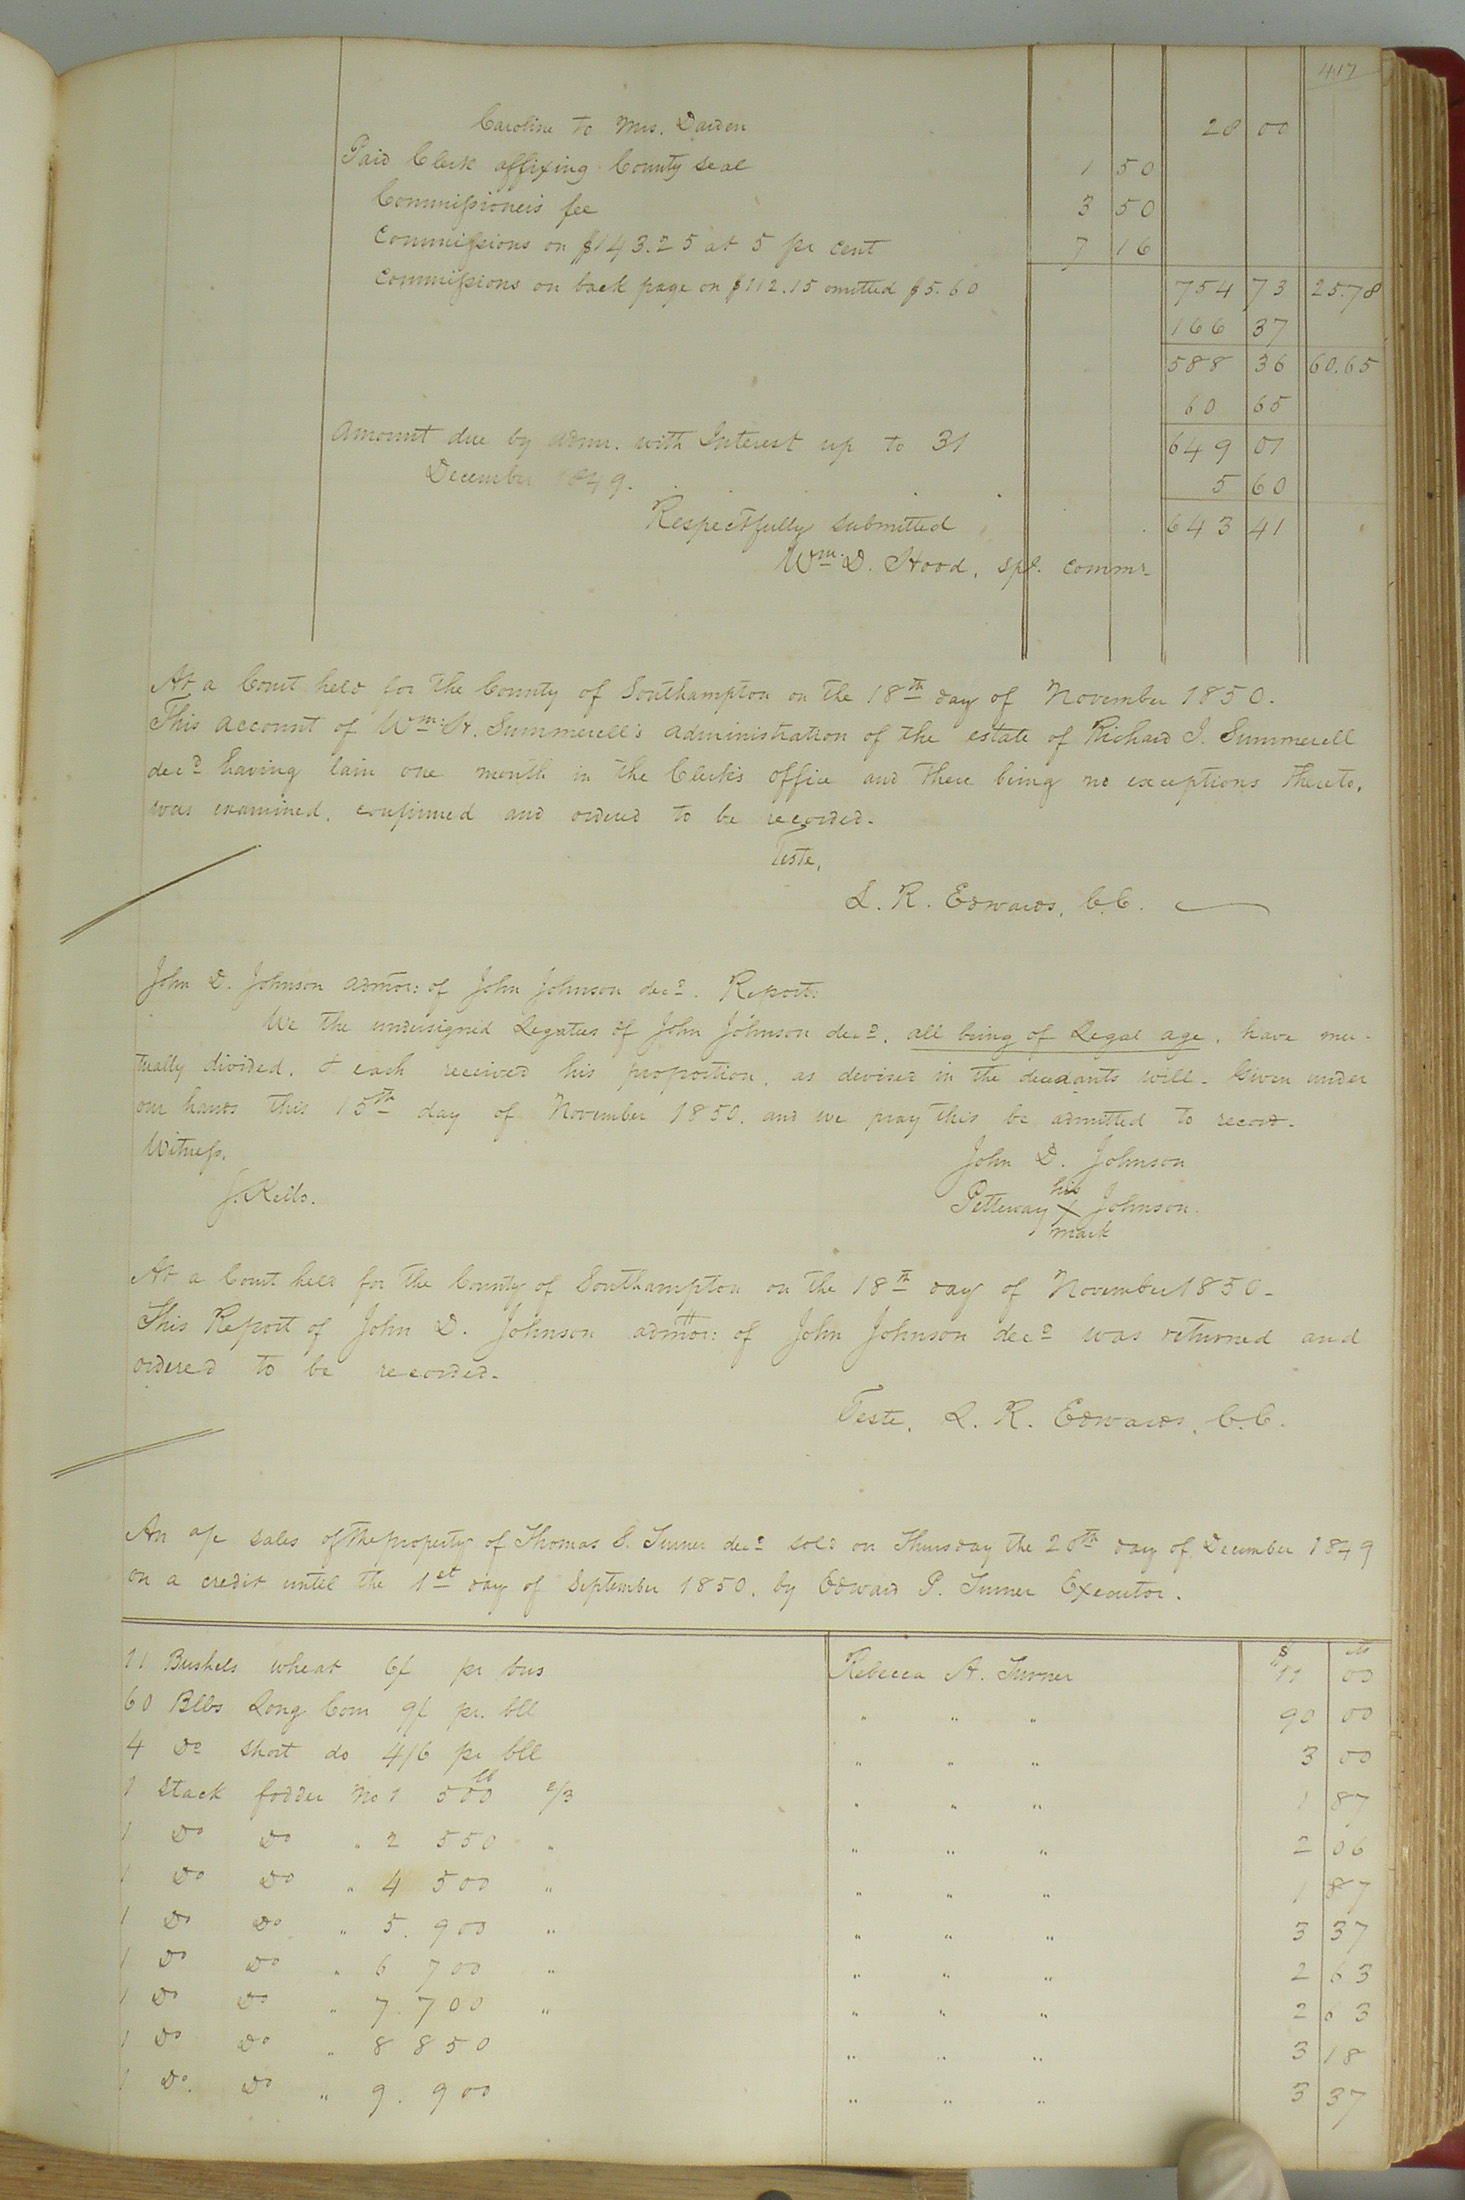 417
Caroline to Mrs. Darden 28 00
Paid Clerk affixing County seal 1 50
Commissioner's fee 3 50
Commissions on $143.25 at 5 pr cent 7 16
Commissions on back page on $112.15 omitted $5.60 754 73 25.78
166 37
588 36 60.65
60 65
Amount due by admr. with Interest up to 31 649 01
December 1849. 5 60
Respectfully submitted 643 41
Wm. D. Hood, spl. commr
At a Court held for the County of Southampton on the 18th day of November 1850.
This account of Wm: Summerell's administration of the estate of Richard J. Summerell
decd having lain one month in the Clerk's office and there being no exceptions thereto,
was examined, confirmed and ordered to be recorded.
Teste,
L. R. Edwards, C.C.
John D. Johnson admor: of John Johnson decd. Report:
We the undersigned Legatees of John Johnson decd, all being of Legal age, have mu-
tually divided, & each received his proportion, as devised in the decedants will. Given under
our hands this 15th day of November 1850, and we pray this be admitted to record.
Witness, John D. Johnson
his
Petteway X Johnson.
mark
At a Court held for the County of Southampton on the 18th day of November 1850-
This Report of John D. Johnson admor: of John Johnson decd was returned and
ordered to be recorded.
Teste, L. R. Edwards, C.C.
An a/c sales of the property of Thomas S. Turner decd sold on Thursday the 20th day of December 1849
on a credit until the 1st day of September 1850, by Edward P. Turner Executor.
11 Bushels wheat 6/ pr bus Rebecca A. Turner $11 00
60 Blbs Long Corn 9/ pr. bll " " " 90 00
4 Do short do 4/6 pr bll " " " 3 00
1 Stack fodder No 1 500 lb 2/3 " " " 1 87
1 Do Do " 2 550 " " " " 2 06
1 Do Do " 4 500 " " " " 1 87
1 Do Do " 5. 900 " " " " 3 37
1 Do Do " 6 700 " " " " 2 63
1 Do Do " 7. 700 " " " " 2 63
1 Do Do " 8 850 " " " 3 18
1 Do. Do " 9. 900 " " " 3 37